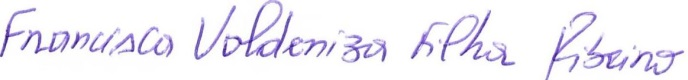 Francisca Valdeniza Filha Ribeiro